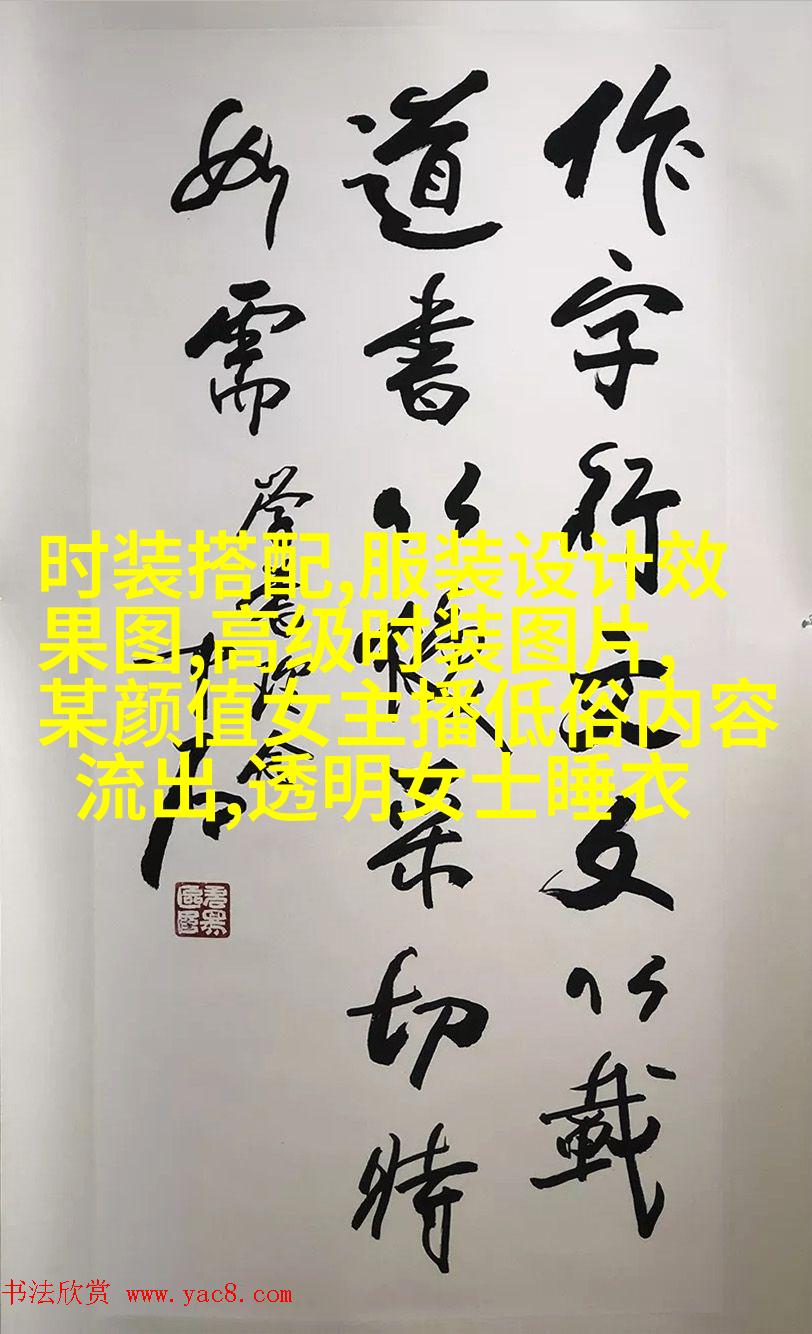 作字行文文以載
道書以焕采切時
如需
时装搭配,服装设计效
果图,高级时装图片,
某颜值女主播低俗内容
流出,透明女士睡衣
书法欣赏 www.yac8.com